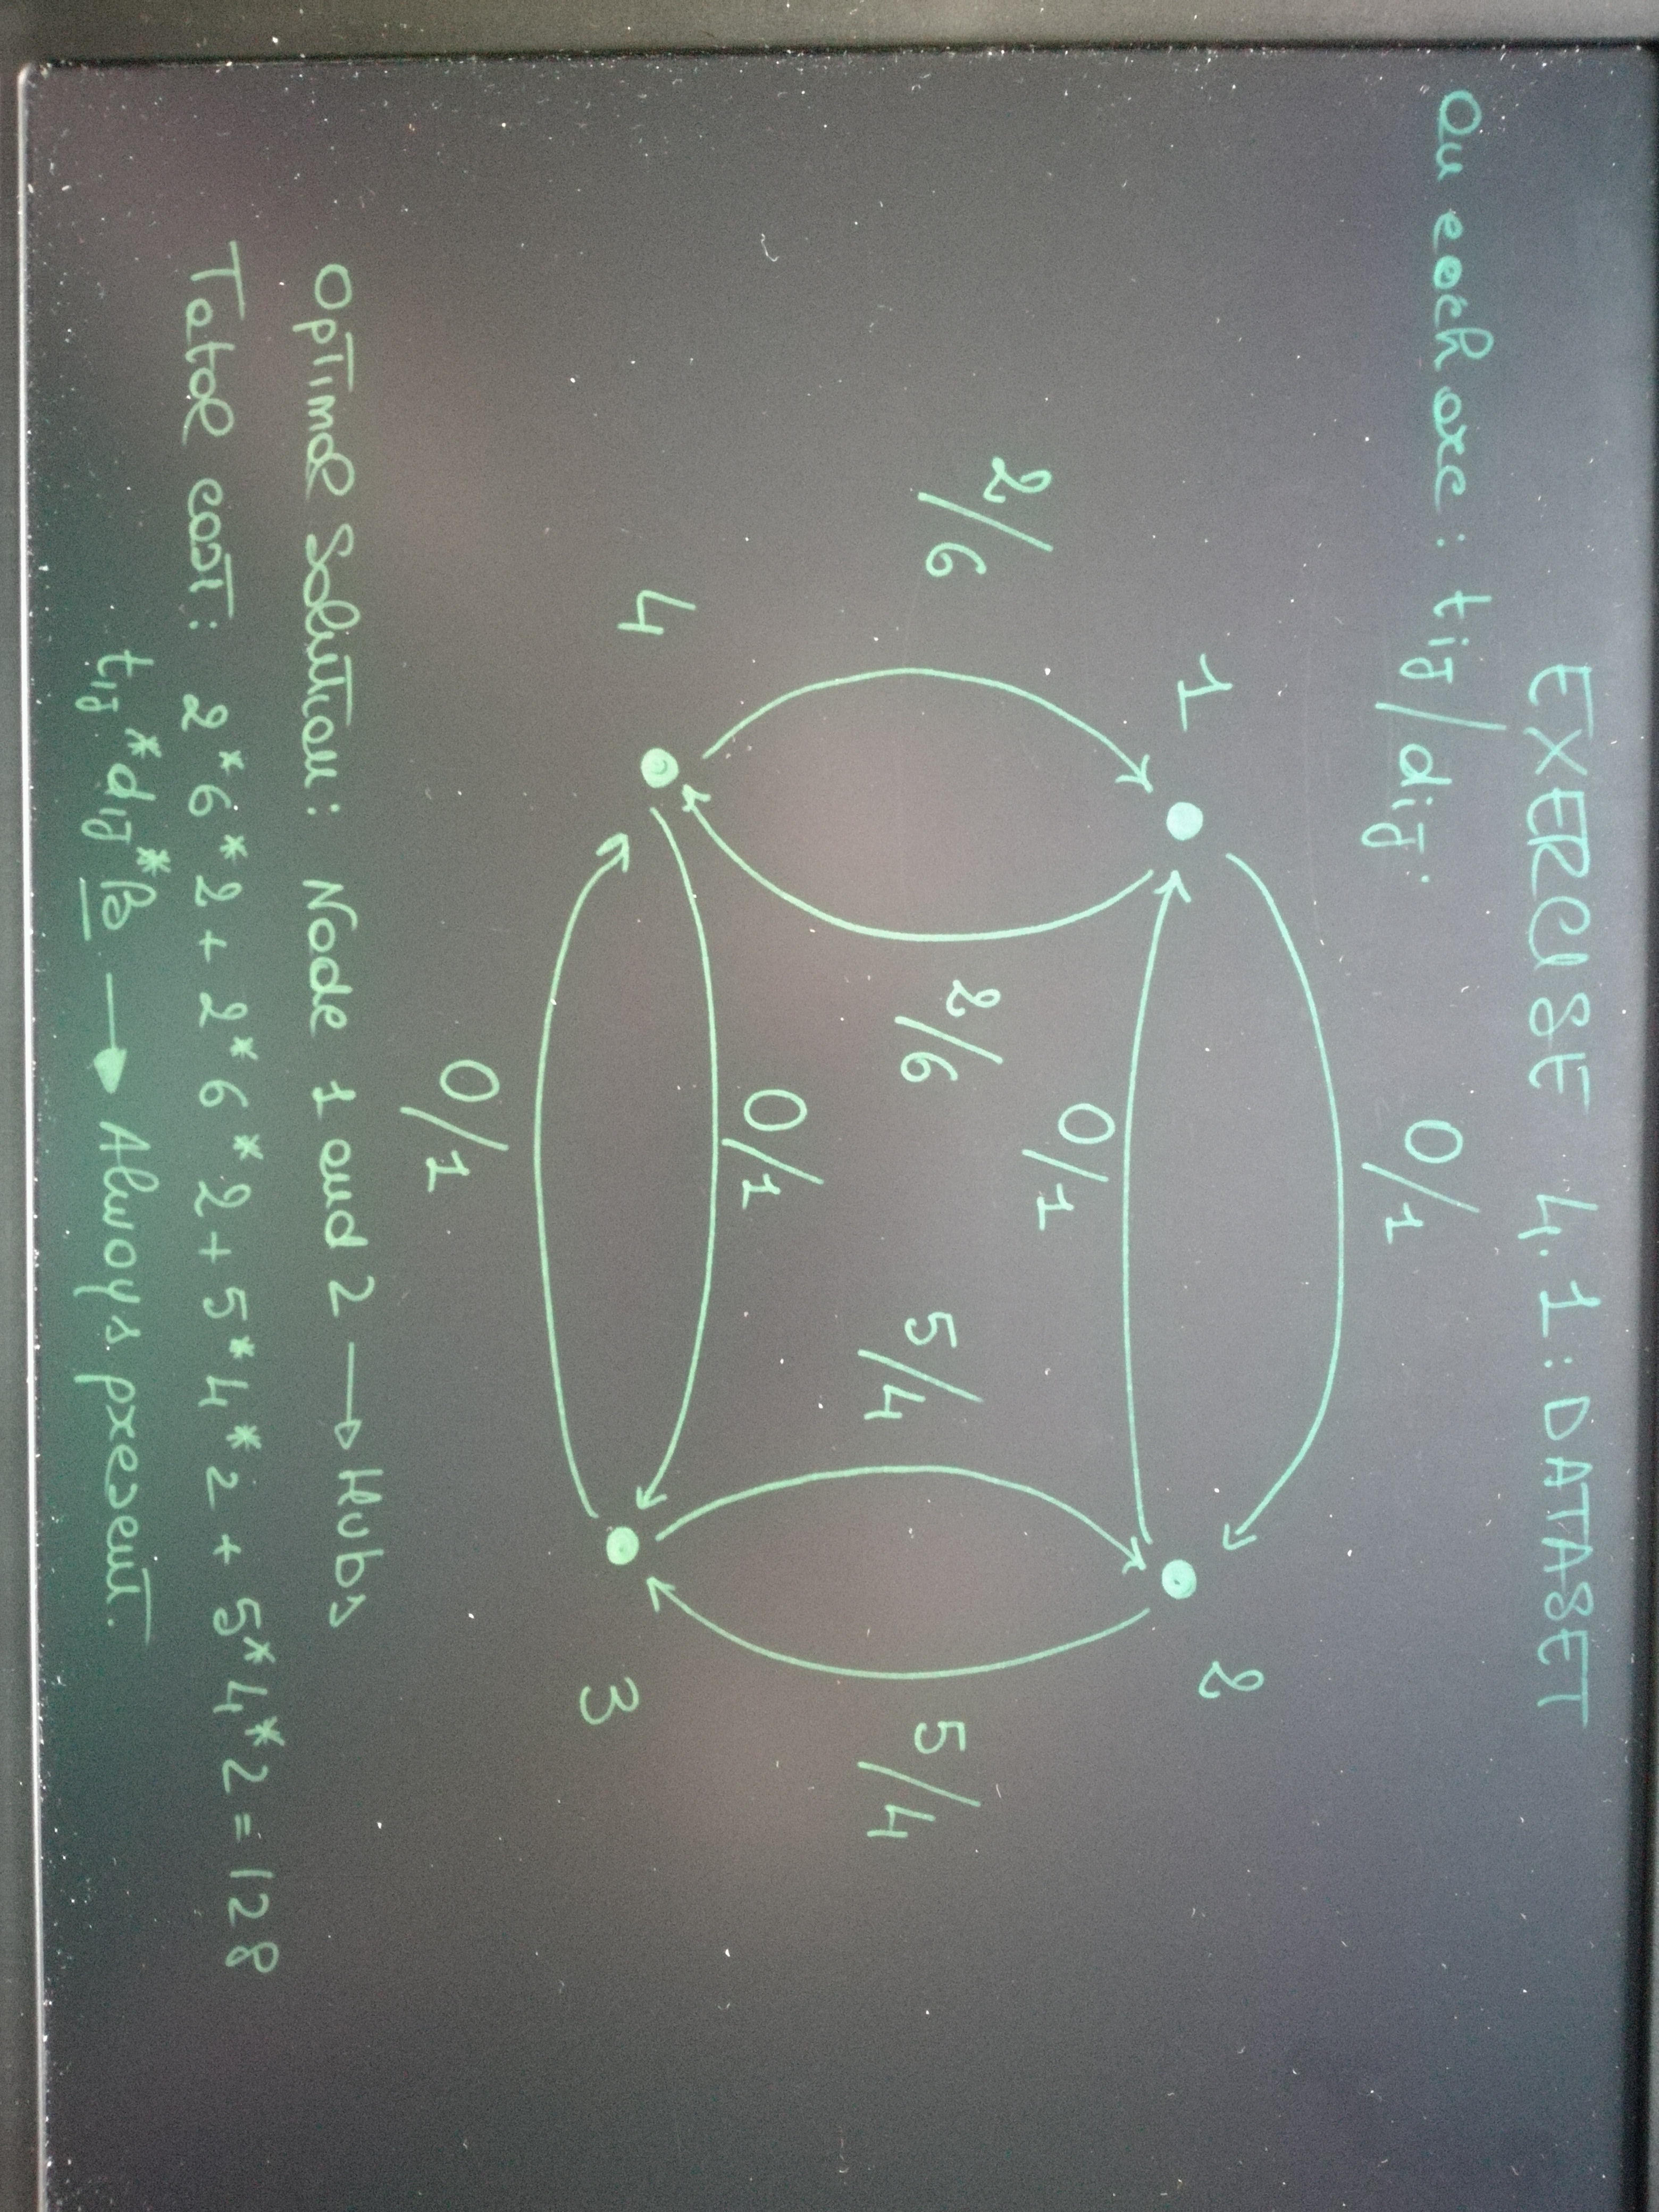 EXERCISE 4.1: DATASET
On each arc: tij/dij.
0/1
1
2
2/6
2/6
0/1
5/4
5/4
0/1
4
3
0/1
Optimal Solution: Node 1 and 2 → Hubs
Total cost: 2*6*2 + 2*6*2 + 5*4*2 + 5*4*2 = 128
tij*dij*β → Always present.